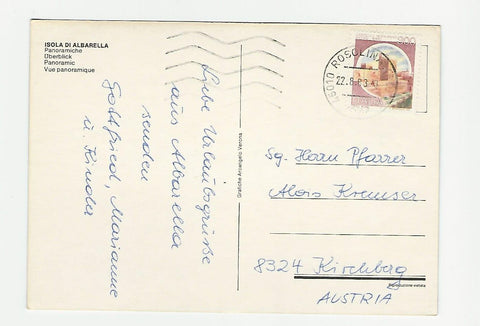 ISOLA DI ALBARELLA
Panoramiche
Überblick
Panoramic
Vue panoramique
Liebe Urlaubsgrüße
aus Albarella
senden
Gottfried, Marianne
u. Kinder
Grafiche Arcangelico Verona
45010 ROSOLINA
22.8.83
Sg. Herrn Pfarrer
Alois Kremser
8324 Kirchberg
AUSTRIA
Riproduzione vietata